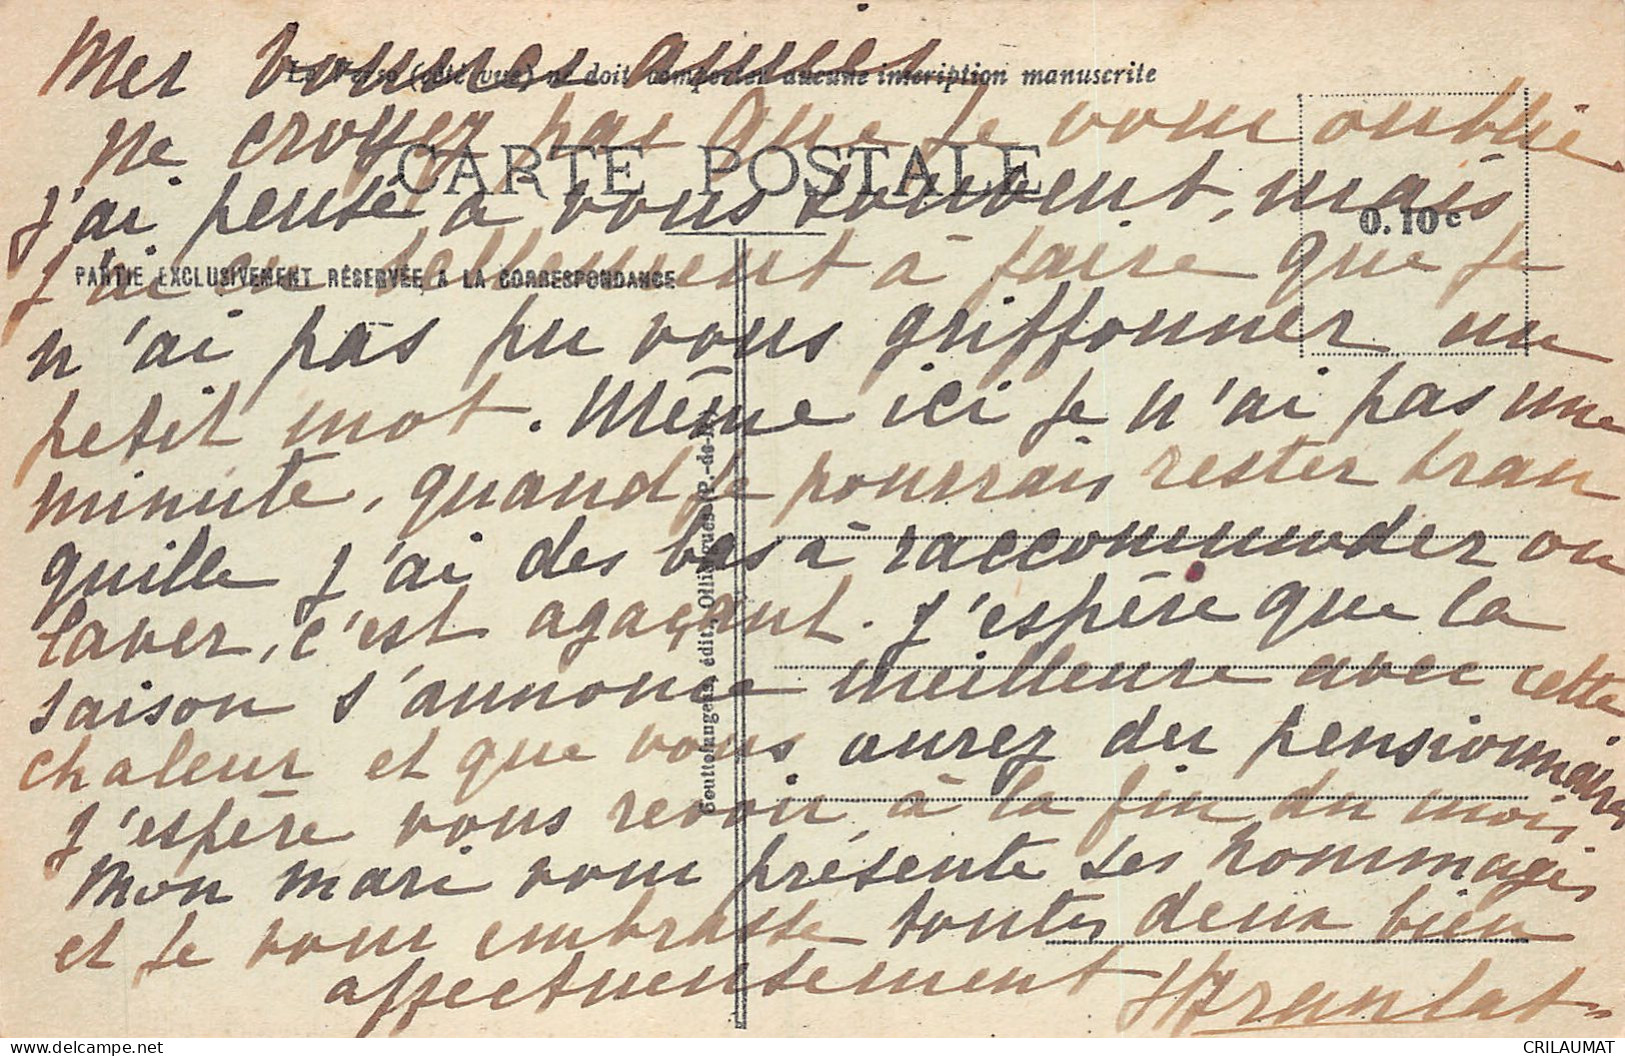 Mes bonnes amies
Le Verso (côté vue) ne doit comporter aucune inscription manuscrite
ne croyez pas que je vous oublie
CARTE POSTALE
j'ai pensé à vous souvent, mais
0.10 c
PARTIE EXCLUSIVEMENT RÉSERVÉE A LA CORRESPONDANCE
j'ai eu tellement à faire que je
n'ai pas pu vous griffonner un
petit mot. Même ici je n'ai pas une
minute, quand je pourrais rester tran
quille j'ai des bas à raccommoder ou
laver, c'est agaçant. J'espère que la
saison s'annonce meilleure avec cette
chaleur et que vous aurez des pensionnaires
J'espère vous revoir à la fin du mois
Mon mari vous présente ses hommages
et je vous embrasse toutes deux bien
affectueusement
Gouttefangeas, édit., Olliergues (P.-de-D.)
CRILAUMAT